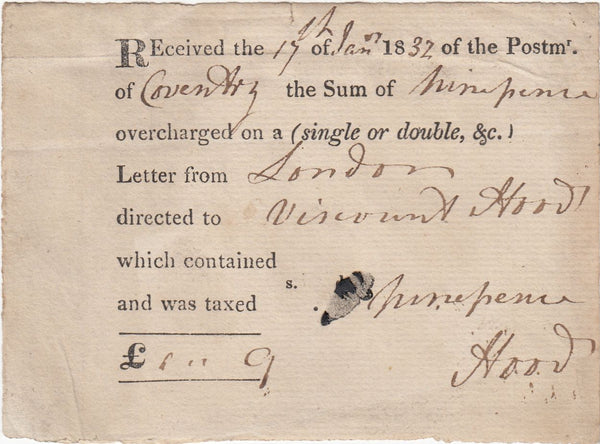 REceived the 17th of Jany 1832 of the Postmr.
of Coventry the Sum of Ninepence
overcharged on a (single or double, &c.)
Letter from London
directed to Viscount Hood
which contained
s.
and was taxed Ninepence
£ 9
Hood